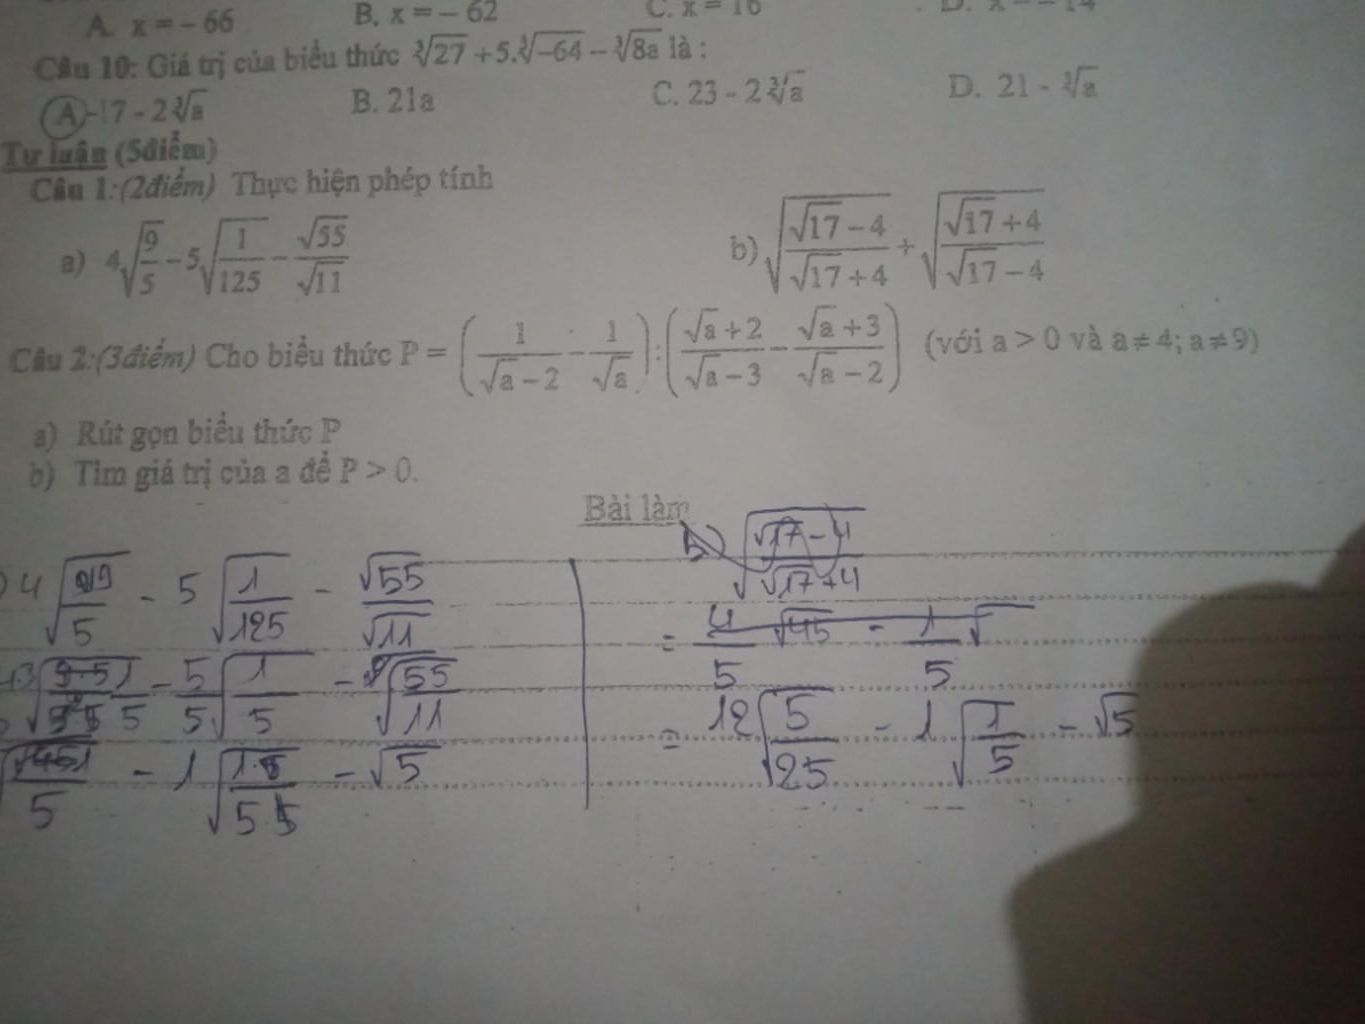 A. x = - 66 B. x = - 62 C. x = 16 D. x = - 14
Câu 10: Giá trị của biểu thức ∛27 + 5.∛-64 - ∛8a là :
A -17 - 2∛a B. 21a C. 23 - 2∛a D. 21 - ∛a
Tự luận (5điểm)
Câu 1:(2điểm) Thực hiện phép tính
a) 4√(9/5) - 5√(1/125) - √55/√11 b) √((√17 - 4)/(√17 + 4)) + √((√17 + 4)/(√17 - 4))
Câu 2:(3điểm) Cho biểu thức P = (1/(√a - 2) - 1/√a) : ((√a + 2)/(√a - 3) - (√a + 3)/(√a - 2)) (với a > 0 và a ≠ 4; a ≠ 9)
a) Rút gọn biểu thức P
b) Tìm giá trị của a để P > 0.
Bài làm
) 4√(9/5) - 5√(1/125) - √55/√11
- 5/5 √(1/5) - √(55/11)
- 1√(1.5/5.5) - √5
b) √((√17 - 4)/(√17 + 4))
= 4/5 √45 - 1/5 √
= 12√(5/25) - 1√(1/5) - √5